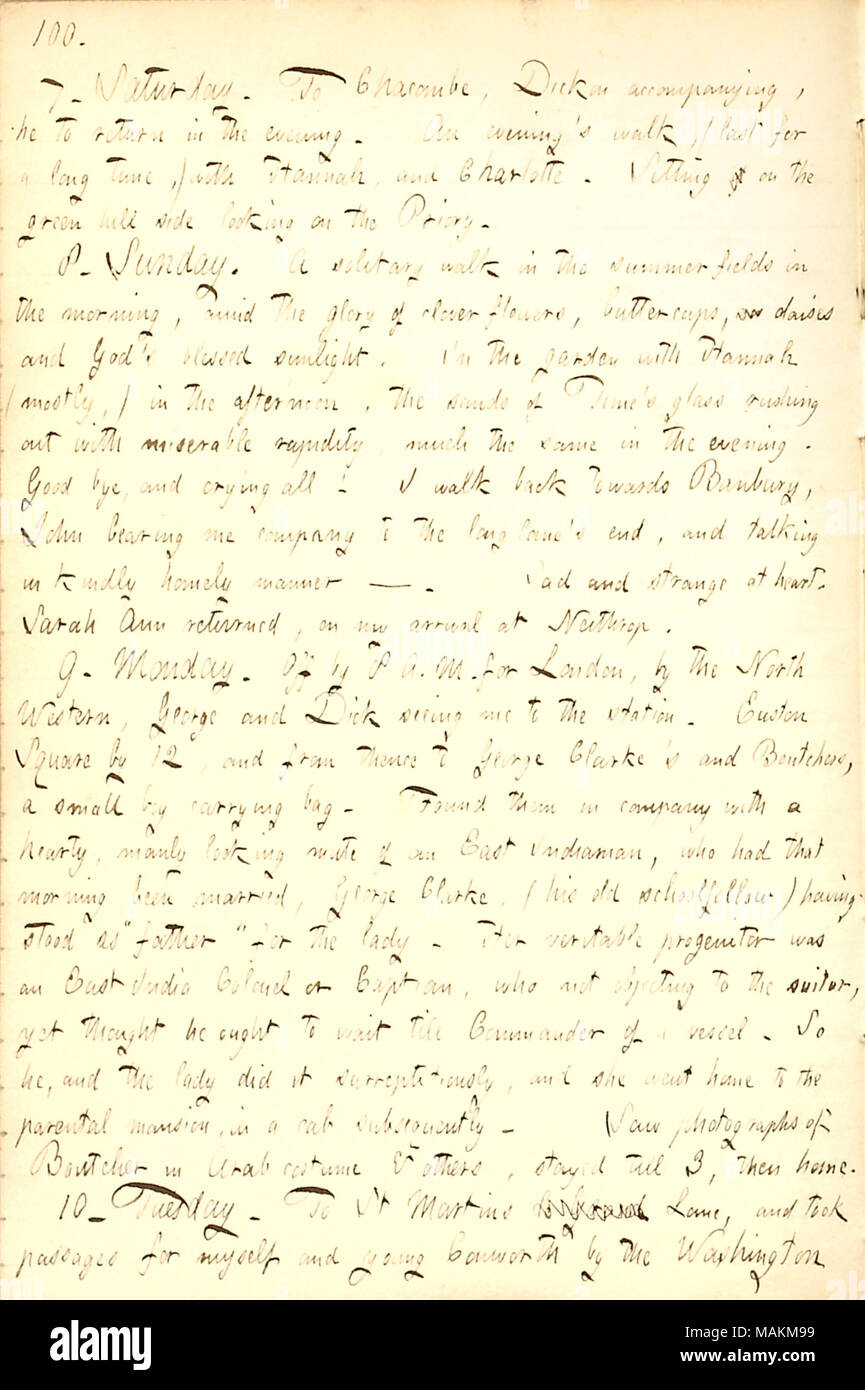 100.
7_ Saturday_ To Chacombe, Dickon accompanying,
he to return in the evening_ An evening's walk, (last for
a long time,) with Hannah, and Charlotte_ Sitting on the
green hill side looking on the Priory_
8_ Sunday. A solitary walk in the summer fields in
the morning, 'amid the glory of clover flowers, buttercups, daises
and God's blessed sunlight. In the garden with Hannah
(mostly,) in the afternoon, the sands of Time's glass rushing
out with miserable rapidity, much the same in the evening.
Good bye, and crying all! I walk back towards Banbury,
John bearing me company to the long lane's end, and talking
in kindly homely manner __. Sad and strange at heart_
Sarah Ann returned, on my arrival at Neithrop.
9_ Monday_ Off by 8 A.M. for London, by the North
Western, George and Dick seeing me to the station_ Euston
Square by 12, and from thence to George Clarke's and Boutchers,
a small boy carrying bag_ Found them in company with a
hearty, manly looking mate of an East Indiaman, who had that
morning been married, George Clarke, (his old schoolfellow) having
stood as "father" for the lady_ Her veritable progenitor was
an East India Colonel or Captain, who not objecting to the suitor,
yet thought he ought to wait till Commander of a vessel_ So
he, and the lady did it surreptitiously, and she went home to the
parental mansion, in a cab subsequently_ Saw photographs of
Boutcher in Arab costume & others, stayed till 3, then home.
10_ Tuesday_ To St Martins Lane, and took
passages for myself and young Conworth by the Washington
alamy
Image ID: MAKM99
www.alamy.com